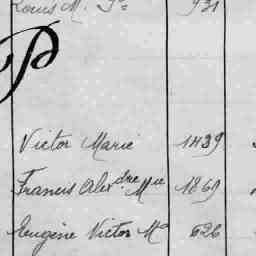 Louis M. Je 931
P
Victor Marie 1439
Francis Alexdre Mie 1869
Eugène Victor Md 626